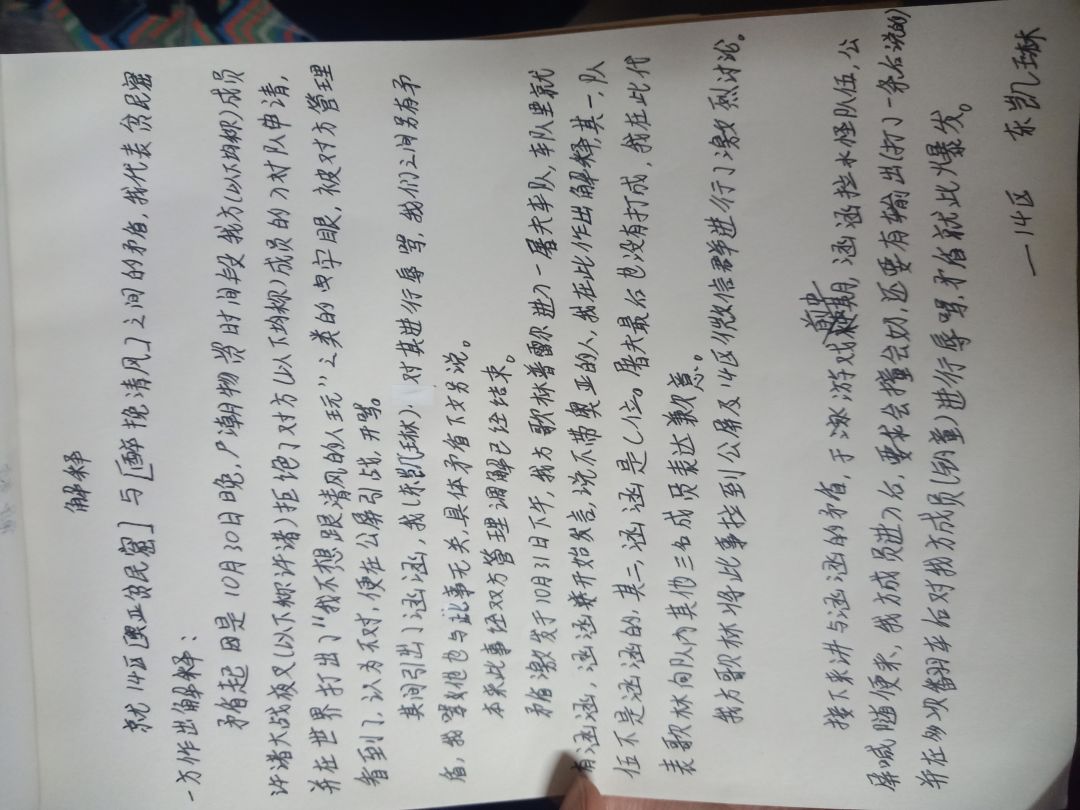 解释
就14区[奥亚贫民窟]与[醉挽清风]之间的矛盾,我代表贫民窟
一方作出解释:
矛盾起因是10月30日晚,尸潮期物资时间段我方(以下均称)成员
许诸大战孩叉(以下称许诸)拒绝了对方(以下均称)成员的刀对队申请,
并在世界打出了"我不想跟清风的人玩"之类的字眼,被对方管理
看到了,认为不对,便在公屏引战,开骂。
其间引出了涵涵,我(东凯琳)对其进行辱骂,我们之间另有矛
盾,我骂她也与此事无关,具体矛盾下文另说。
本来此事经双方管理调解已经结束。
矛盾激发于10月31日下午,我方歌林普雷尔进了一屠夫车队,车队里就
有涵涵,涵涵并开始发言,说不带奥亚的人,我在此作出解释,其一,队
位不是涵涵的,其二,涵涵是乚位。屠夫最后也没有打成,我在此代
表歌林向队内其他三名成员表达歉意。
我方歌林将此事拉到公屏及14区微信群进行了激烈讨论。
接下来讲与涵涵的矛盾,于游戏前中期,涵涵拉水怪队伍,公
屏喊随便来,我方成员进入后,要求会撞会切,还要有输出(打了一条后说的)
并在多次翻车后对我方成员进行辱骂,矛盾就此爆发。
—14区 东凯琳